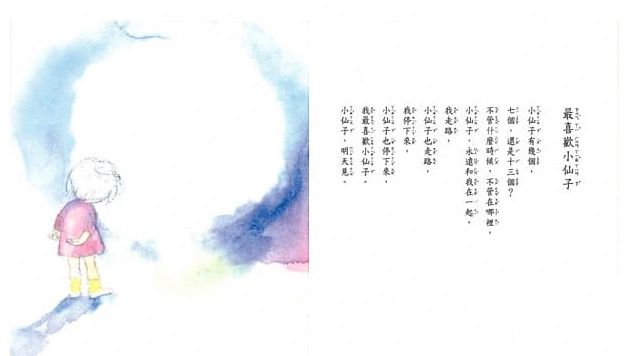 最喜歡小仙子
小仙子有幾個，
七個，還是十三個？
不管什麼時候，不管在哪裡，
小仙子，永遠和我在一起，
我走路，
小仙子也走路，
我停下來，
小仙子也停下來，
我最喜歡小仙子。
小仙子，明天見。